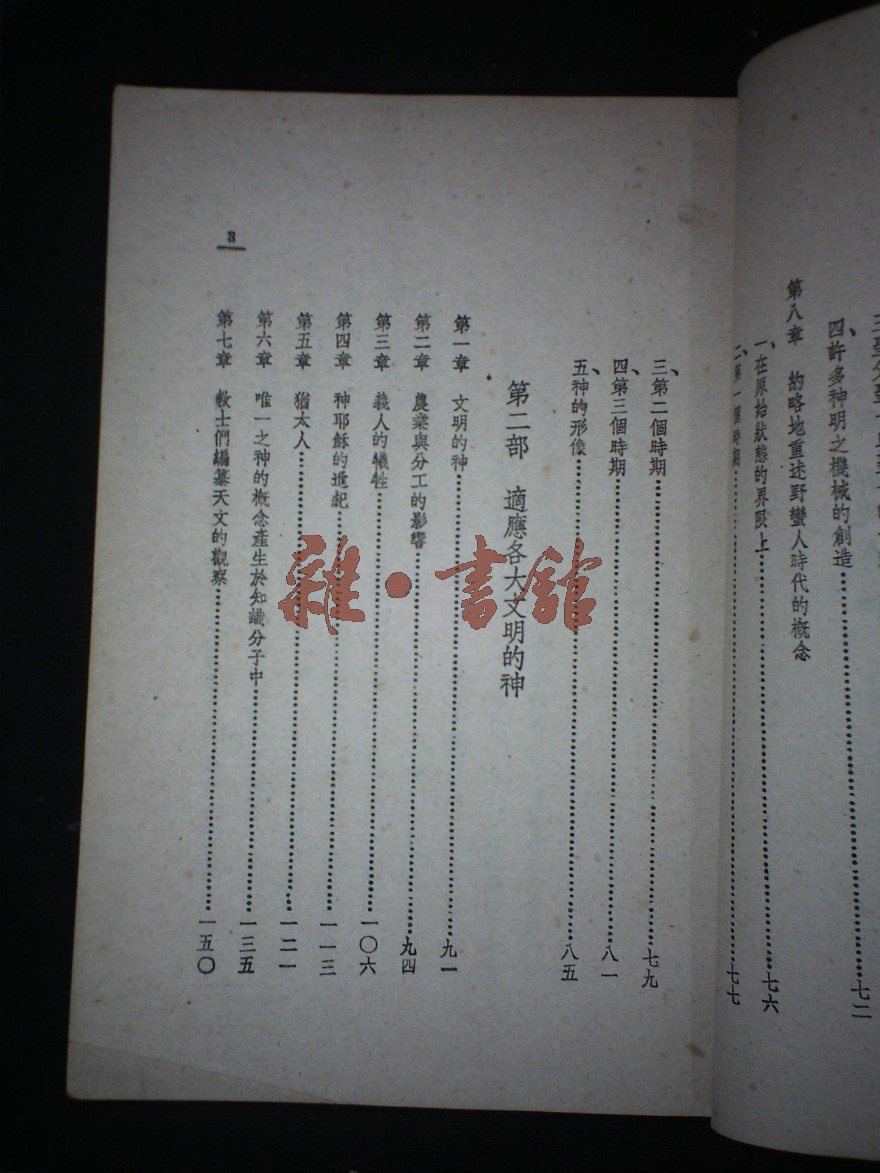 四、許多神明之機械的創造……七二
第八章　約略地重述野蠻人時代的概念
一、在原始狀態的界限上……七六
二、第一個時期……七七
三、第二個時期……七九
四、第三個時期……八一
五、神的形像……八五
第二部　適應各大文明的神
第一章　文明的神……九一
第二章　農業與分工的影響……九四
第三章　義人的犧牲……一〇六
第四章　神耶穌的進化……一一三
第五章　猶太人……一二一
第六章　唯一之神的概念產生於知識分子中……一三五
第七章　教士們編纂天文的觀察……一五〇
3
雜·書館